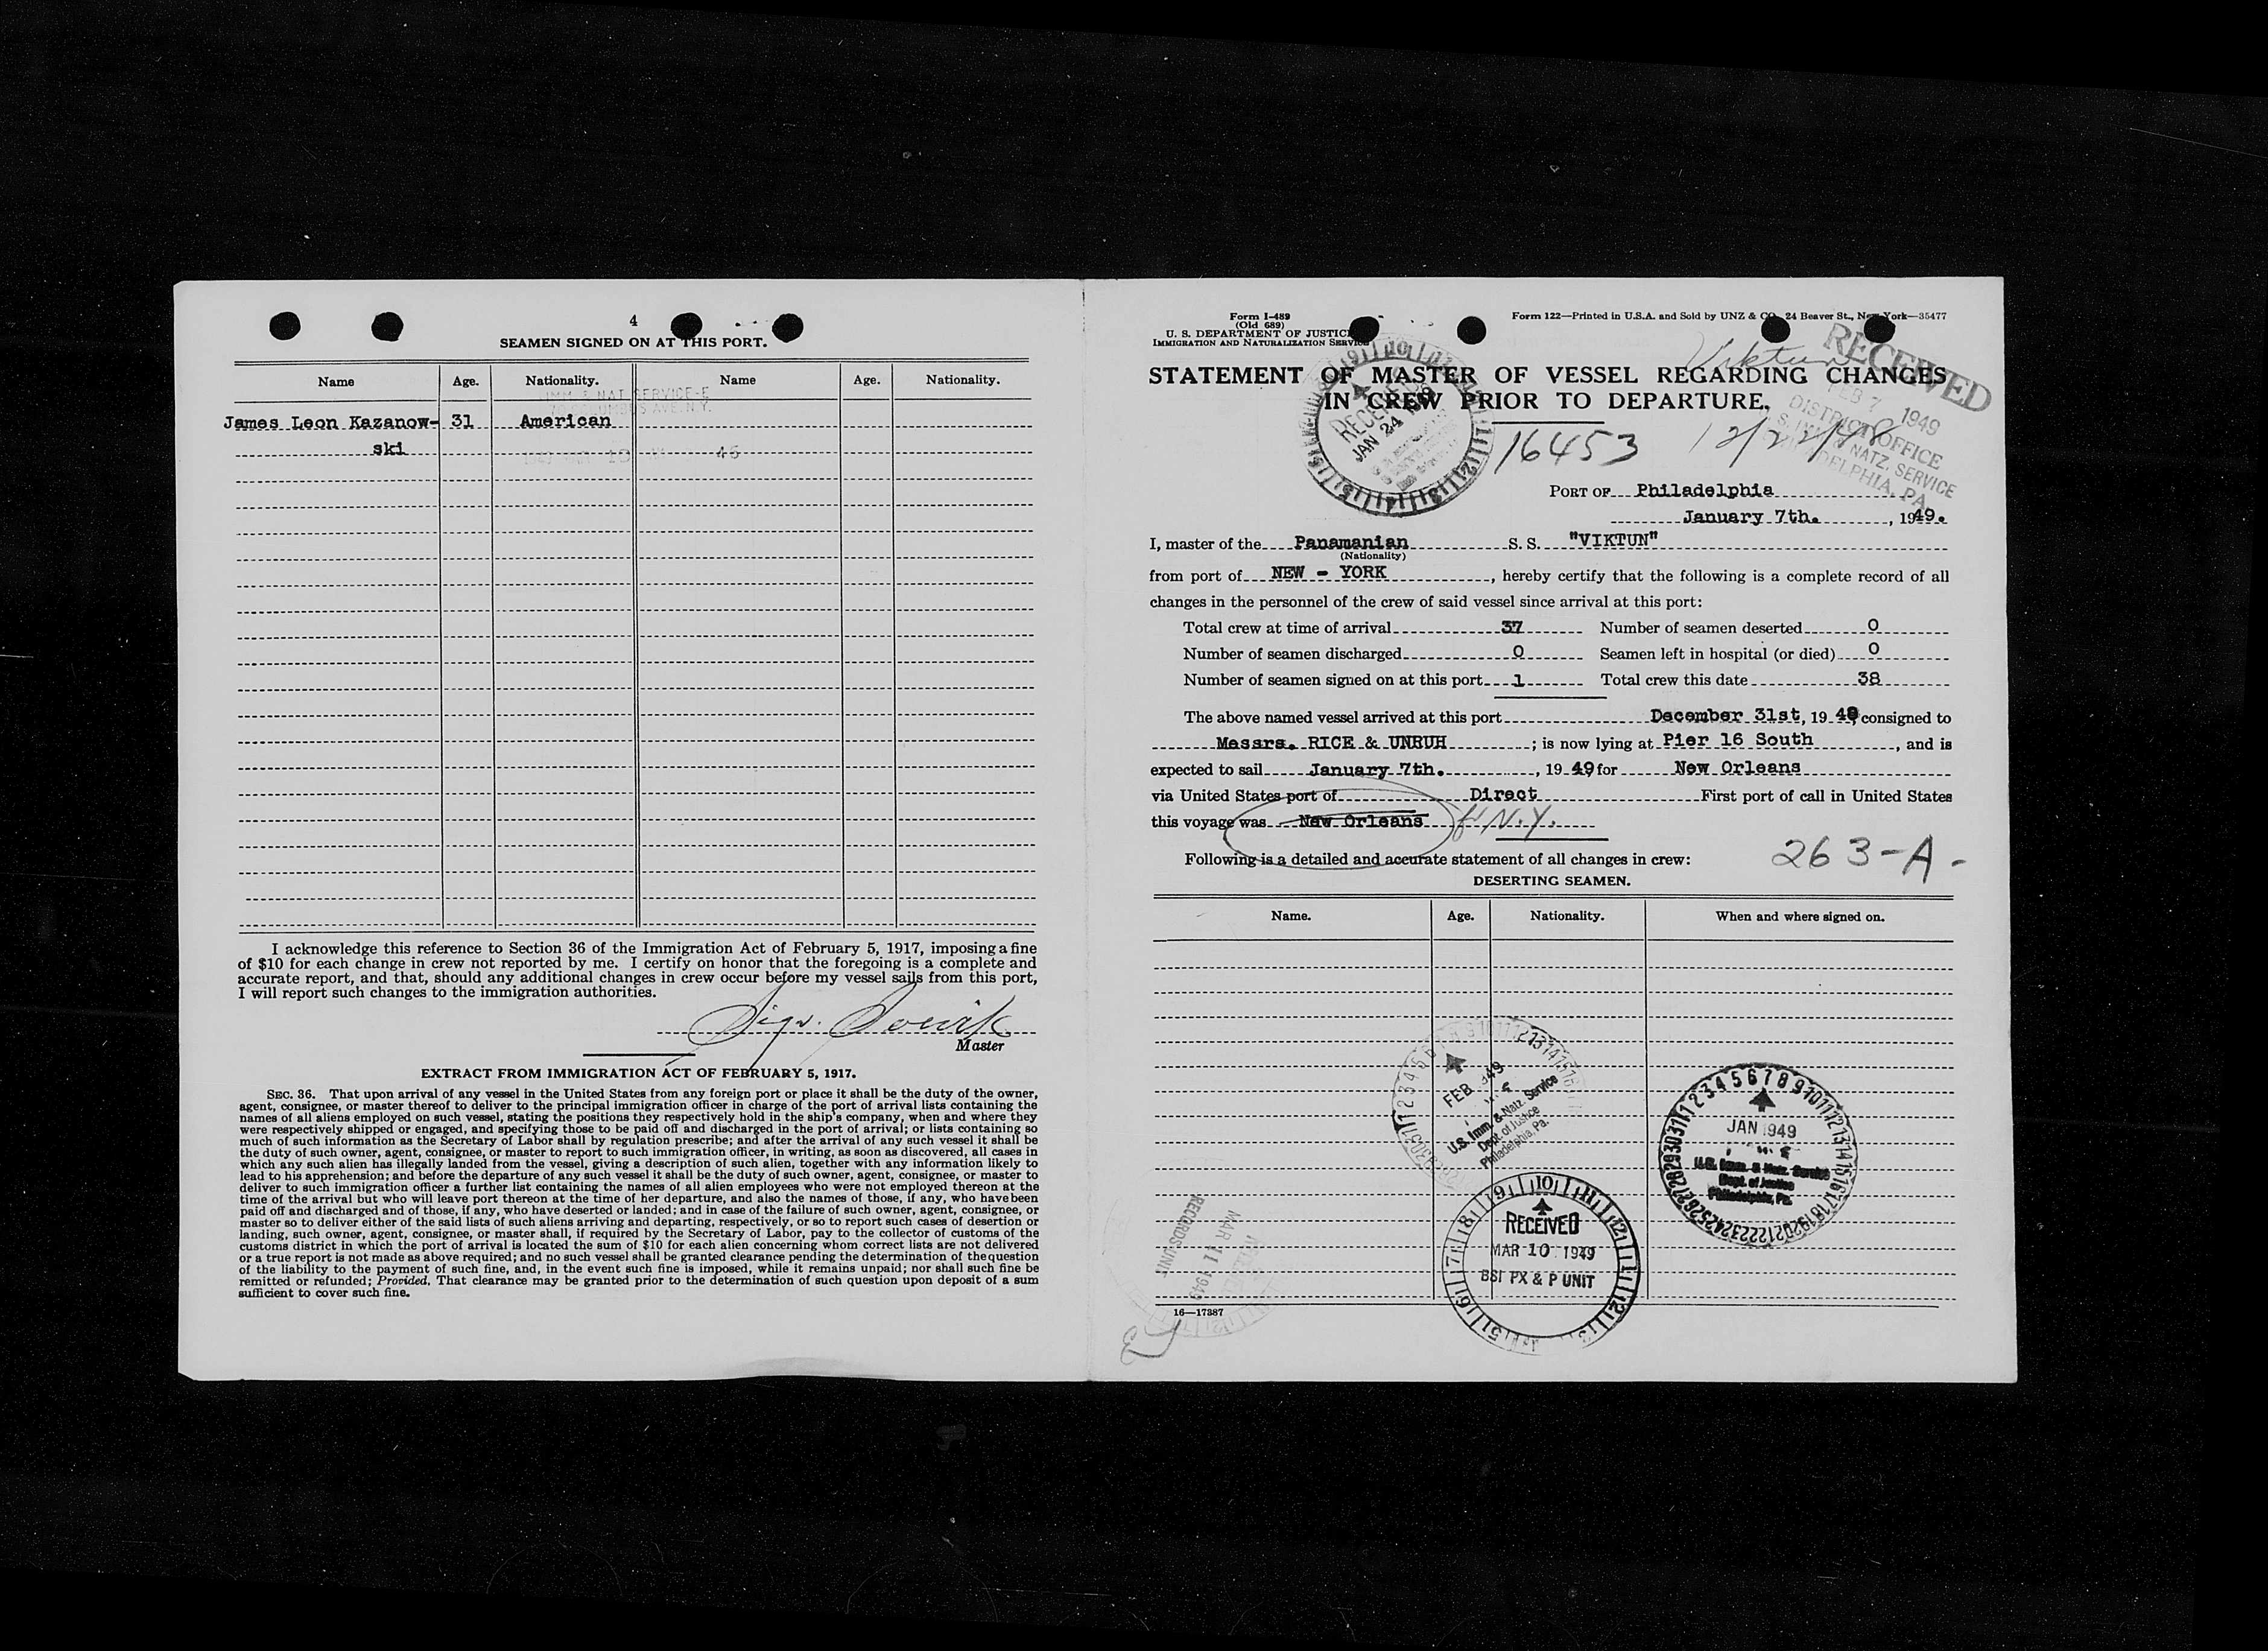 4
SEAMEN SIGNED ON AT THIS PORT.
Name Age. Nationality. Name Age. Nationality.
IMM & NAT SERVICE-E
AVE. N.Y.
James Leon Kazanow- 31 American
ski
I acknowledge this reference to Section 36 of the Immigration Act of February 5, 1917, imposing a fine
of $10 for each change in crew not reported by me. I certify on honor that the foregoing is a complete and
accurate report, and that, should any additional changes in crew occur before my vessel sails from this port,
I will report such changes to the immigration authorities.
Master
EXTRACT FROM IMMIGRATION ACT OF FEBRUARY 5, 1917.
SEC. 36. That upon arrival of any vessel in the United States from any foreign port or place it shall be the duty of the owner,
agent, consignee, or master thereof to deliver to the principal immigration officer in charge of the port of arrival lists containing the
names of all aliens employed on such vessel, stating the positions they respectively hold in the ship's company, when and where they
were respectively shipped or engaged, and specifying those to be paid off and discharged in the port of arrival; or lists containing so
much of such information as the Secretary of Labor shall by regulation prescribe; and after the arrival of any such vessel it shall be
the duty of such owner, agent, consignee, or master to report to such immigration officer, in writing, as soon as discovered, all cases in
which any such alien has illegally landed from the vessel, giving a description of such alien, together with any information likely to
lead to his apprehension; and before the departure of any such vessel it shall be the duty of such owner, agent, consignee, or master to
deliver to such immigration officer a further list containing the names of all alien employees who were not employed thereon at the
time of the arrival but who will leave port thereon at the time of her departure, and also the names of those, if any, who have been
paid off and discharged and of those, if any, who have deserted or landed; and in case of the failure of such owner, agent, consignee, or
master so to deliver either of the said lists of such aliens arriving and departing, respectively, or so to report such cases of desertion or
landing, such owner, agent, consignee, or master shall, if required by the Secretary of Labor, pay to the collector of customs of the
customs district in which the port of arrival is located the sum of $10 for each alien concerning whom correct lists are not delivered
or a true report is not made as above required; and no such vessel shall be granted clearance pending the determination of the question
of the liability to the payment of such fine, and, in the event such fine is imposed, while it remains unpaid; nor shall such fine be
remitted or refunded; Provided, That clearance may be granted prior to the determination of such question upon deposit of a sum
sufficient to cover such fine.
Form I-489
(Old 689)
U. S. DEPARTMENT OF JUSTICE
IMMIGRATION AND NATURALIZATION SERVICE
Form 122—Printed in U.S.A. and Sold by UNZ & CO., 24 Beaver St., New York—35477
Viktun
RECEIVED
FEB 7 1949
DISTRICT OFFICE
NATZ. SERVICE
PHILADELPHIA, PA.
STATEMENT OF MASTER OF VESSEL REGARDING CHANGES
IN CREW PRIOR TO DEPARTURE.
RECEIVED
JAN 24 1949
16453 12/22/48
PORT OF Philadelphia
January 7th. , 1949.
I, master of the Panamanian S. S. "VIKTUN"
(Nationality)
from port of NEW - YORK , hereby certify that the following is a complete record of all
changes in the personnel of the crew of said vessel since arrival at this port:
Total crew at time of arrival 37 Number of seamen deserted 0
Number of seamen discharged 0 Seamen left in hospital (or died) 0
Number of seamen signed on at this port 1 Total crew this date 38
The above named vessel arrived at this port December 31st, 1948, consigned to
Messrs. RICE & UNRUH ; is now lying at Pier 16 South , and is
expected to sail January 7th. , 1949 for New Orleans
via United States port of Direct First port of call in United States
this voyage was New Orleans N.Y.
Following is a detailed and accurate statement of all changes in crew:
263-A-
DESERTING SEAMEN.
Name. Age. Nationality. When and where signed on.
FEB 1949
U.S. Imm. & Natz. Service
Dept. of Justice
Philadelphia, Pa.
JAN 1949
U.S. Imm. & Natz. Service
Dept. of Justice
Philadelphia, Pa.
RECEIVED
MAR 10 1949
BSI PX & P UNIT
MAR 11 1949
RECORDS UNIT
16—17387